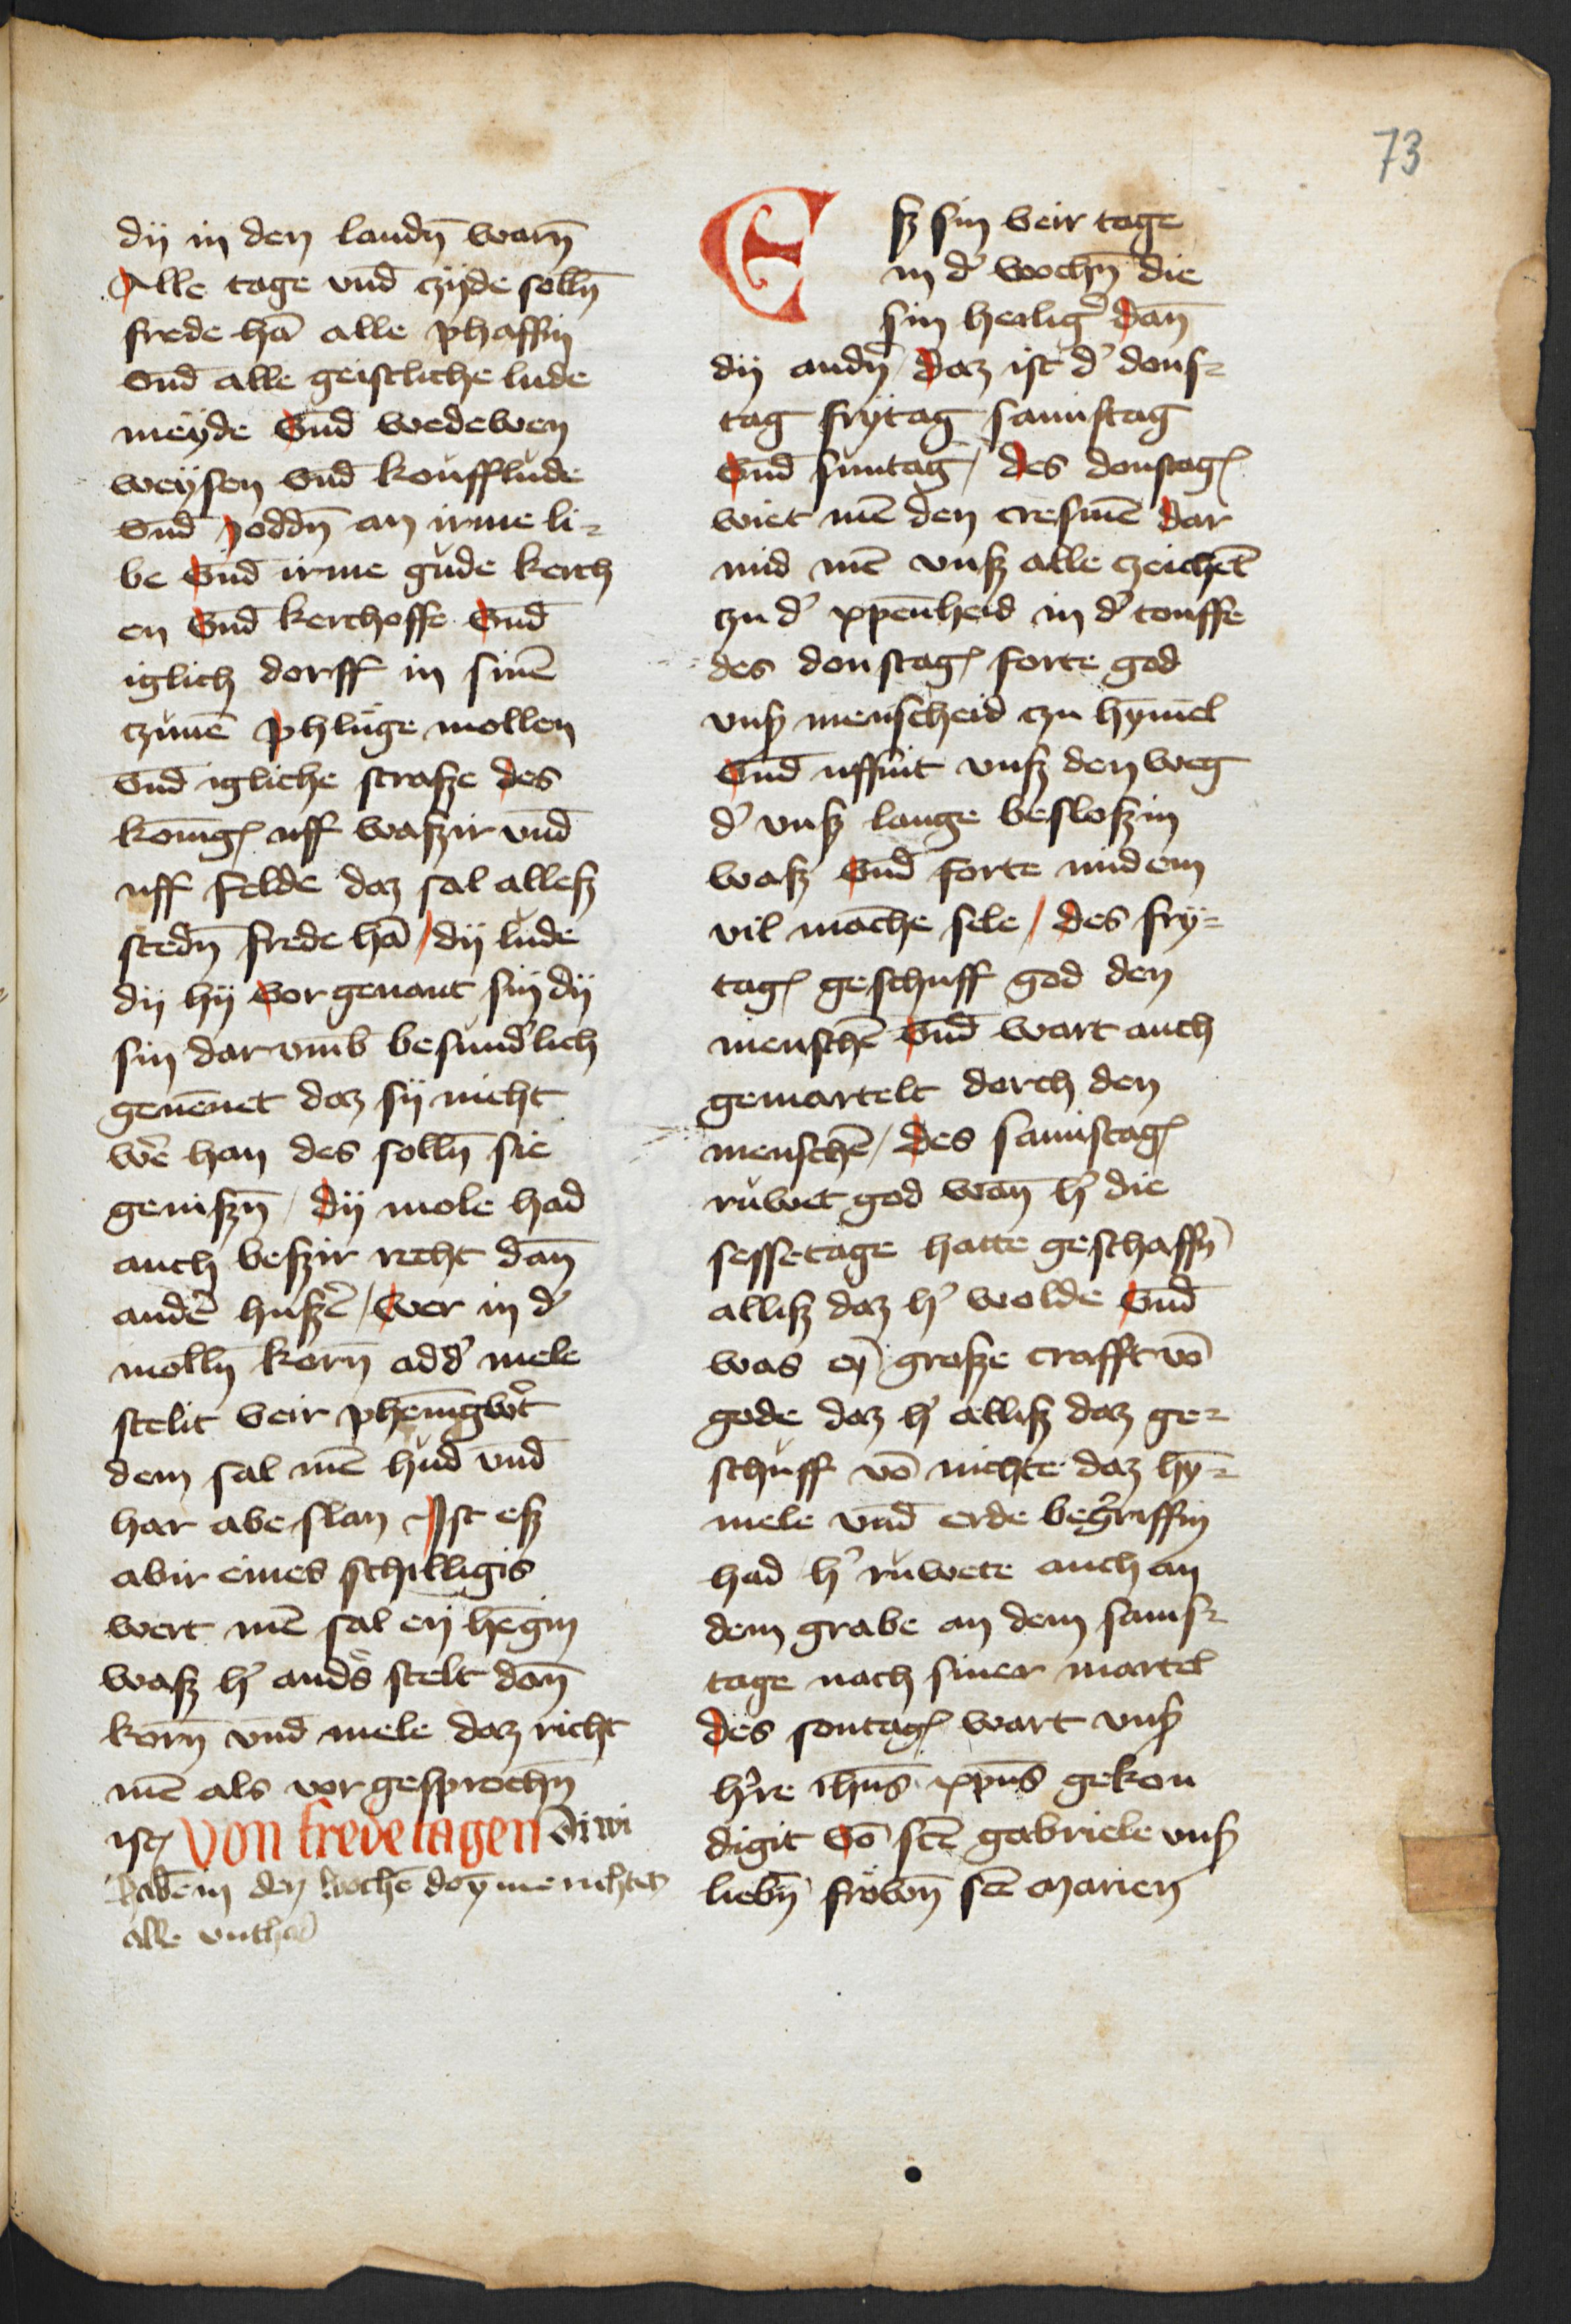 73
dij in den landn̄ warn̄
Alle tage vnd̄ czijde solln̄
frede hā alle phaffin
vnd̄ alle geistliche lude
meyde vnd̄ wedewen
weysen vnd̄ koufflude
vnd̄ Joddn̄ an irme li-
be vnd̄ irme gude kerch
en vnd̄ kerchoffe vnd̄
iglich dorff in sinē
czunē phluge mollen
vnd̄ igliche strasze des
konigꝭ uff waszir vnd̄
uff felde daz sal allesz
stedn̄ frede hā / dij lude
dij hij vor genant sin dij
sin dar vmb besund'lich
genēnet daz sij nicht
wē han des solln̄ sie
geniszn̄ / dij mole had
auch beszir recht dan̄
andē huszē / wer in d'
molln̄ korn̄ add' mele
stelit veir phenīgw't
dem sal mē hud vnd̄
har abe slan Ist esz
abir eines schilligis
wert mē sal en hēgin
wasz h' and's stelt dan̄
korn̄ vnd̄ mele daz richt
mē als vor gesprochn̄
ist von fredetagen
alle
Esz sin veir tage
in d' wochn̄ die
sin heilig' dan̄
dij andn̄ / daz ist d' dons-
tag frytag samstag
vnd̄ suntag / des donstagꝭ
wiet mē den cresmē dar
mid mē vnsz alle czeichet̄
czu d' xp̄enheid in d' touffe
des donstagꝭ forte god
vns' menscheid czu hymel
vnd̄ uffint vnsz den weg
d' vnsz lange besloszin
wasz vnd̄ forte mid em
vil manche sele / des fry-
tagꝭ geschuff god den
menschē vnd̄ wart auch
gemartelt dorch den
menschē / des samstagꝭ
ruwet god wan̄ h' die
sesse tage hatte geschaffn̄
allisz daz h' wolde vnd̄
was en grosze crafft vō
gode daz h' allisz daz ge-
schuff vō nichte daz hy-
mele vnd̄ erde begriffin
had h' ruwete auch an
dem grabe an dem sams-
tage nach siner martel
des sontagꝭ wart vns'
h're ih̄us xp̄us gekon
digit vō sc̄te gabriele vns'
liebn̄ frown̄ sc̄e Marien